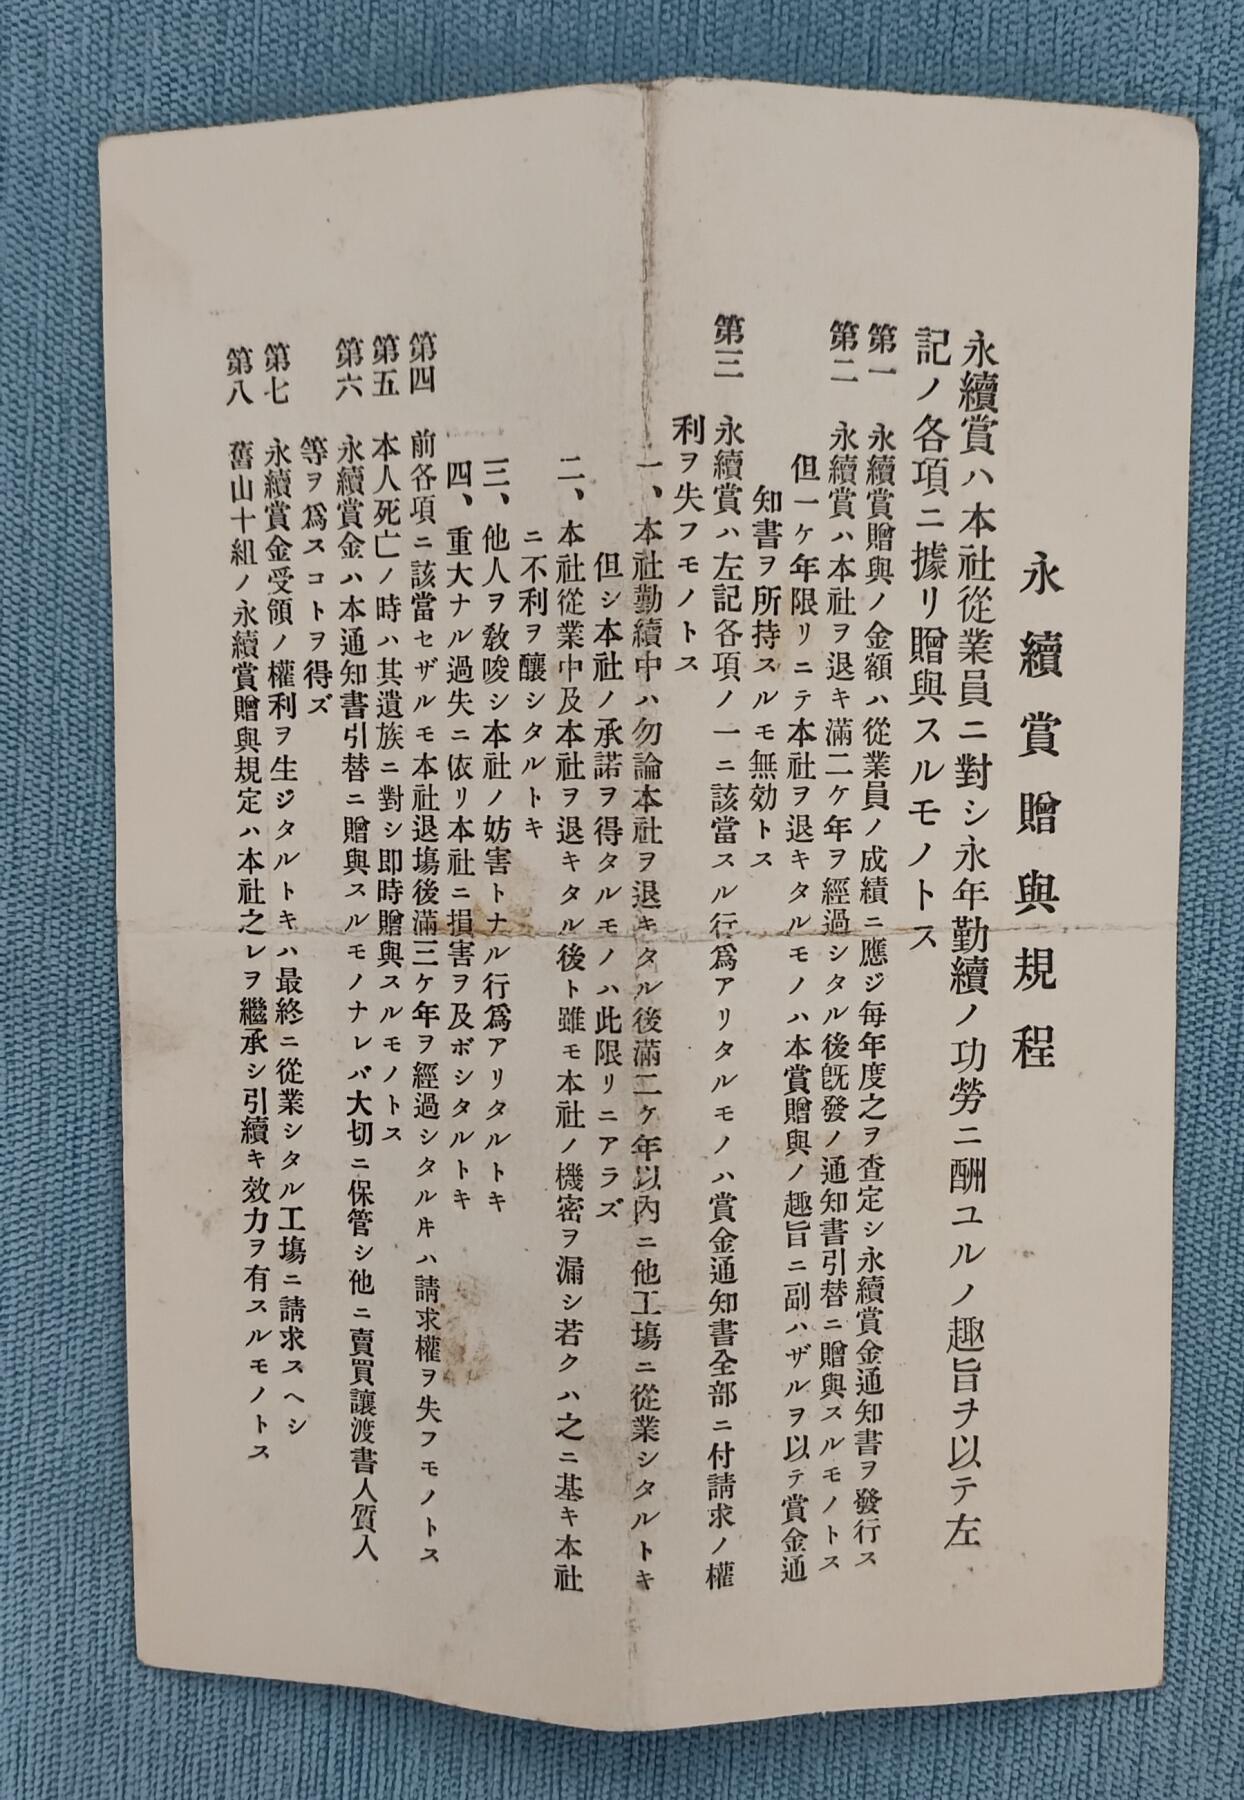 永續賞贈與規程
永續賞ハ本社從業員ニ對シ永年勤續ノ功勞ニ酬ユルノ趣旨ヲ以テ左
記ノ各項ニ據リ贈與スルモノトス
第一 永續賞贈與ノ金額ハ從業員ノ成績ニ應ジ毎年度之ヲ査定シ永續賞金通知書ヲ發行ス
第二 永續賞ハ本社ヲ退キ滿二ケ年ヲ經過シタル後旣發ノ通知書引替ニ贈與スルモノトス
但一ケ年限リニテ本社ヲ退キタルモノハ本賞贈與ノ趣旨ニ副ハザルヲ以テ賞金通
知書ヲ所持スルモ無効トス
第三 永續賞ハ左記各項ノ一ニ該當スル行爲アリタルモノハ賞金通知書全部ニ付請求ノ權
利ヲ失フモノトス
一、本社勤續中ハ勿論本社ヲ退キタル後滿二ケ年以內ニ他工塲ニ從業シタルトキ
但シ本社ノ承諾ヲ得タルモノハ此限リニアラズ
二、本社從業中及本社ヲ退キタル後ト雖モ本社ノ機密ヲ漏シ若クハ之ニ基キ本社
ニ不利ヲ釀シタルトキ
三、他人ヲ敎唆シ本社ノ妨害トナル行爲アリタルトキ
四、重大ナル過失ニ依リ本社ニ損害ヲ及ボシタルトキ
第四 前各項ニ該當セザルモ本社退塲後滿三ケ年ヲ經過シタルキハ請求權ヲ失フモノトス
第五 本人死亡ノ時ハ其遺族ニ對シ即時贈與スルモノトス
第六 永續賞金ハ本通知書引替ニ贈與スルモノナレバ大切ニ保管シ他ニ賣買讓渡書入質入
等ヲ爲スコトヲ得ズ
第七 永續賞金受領ノ權利ヲ生ジタルトキハ最終ニ從業シタル工塲ニ請求スヘシ
第八 舊山十組ノ永續賞贈與規定ハ本社之レヲ繼承シ引續キ效力ヲ有スルモノトス